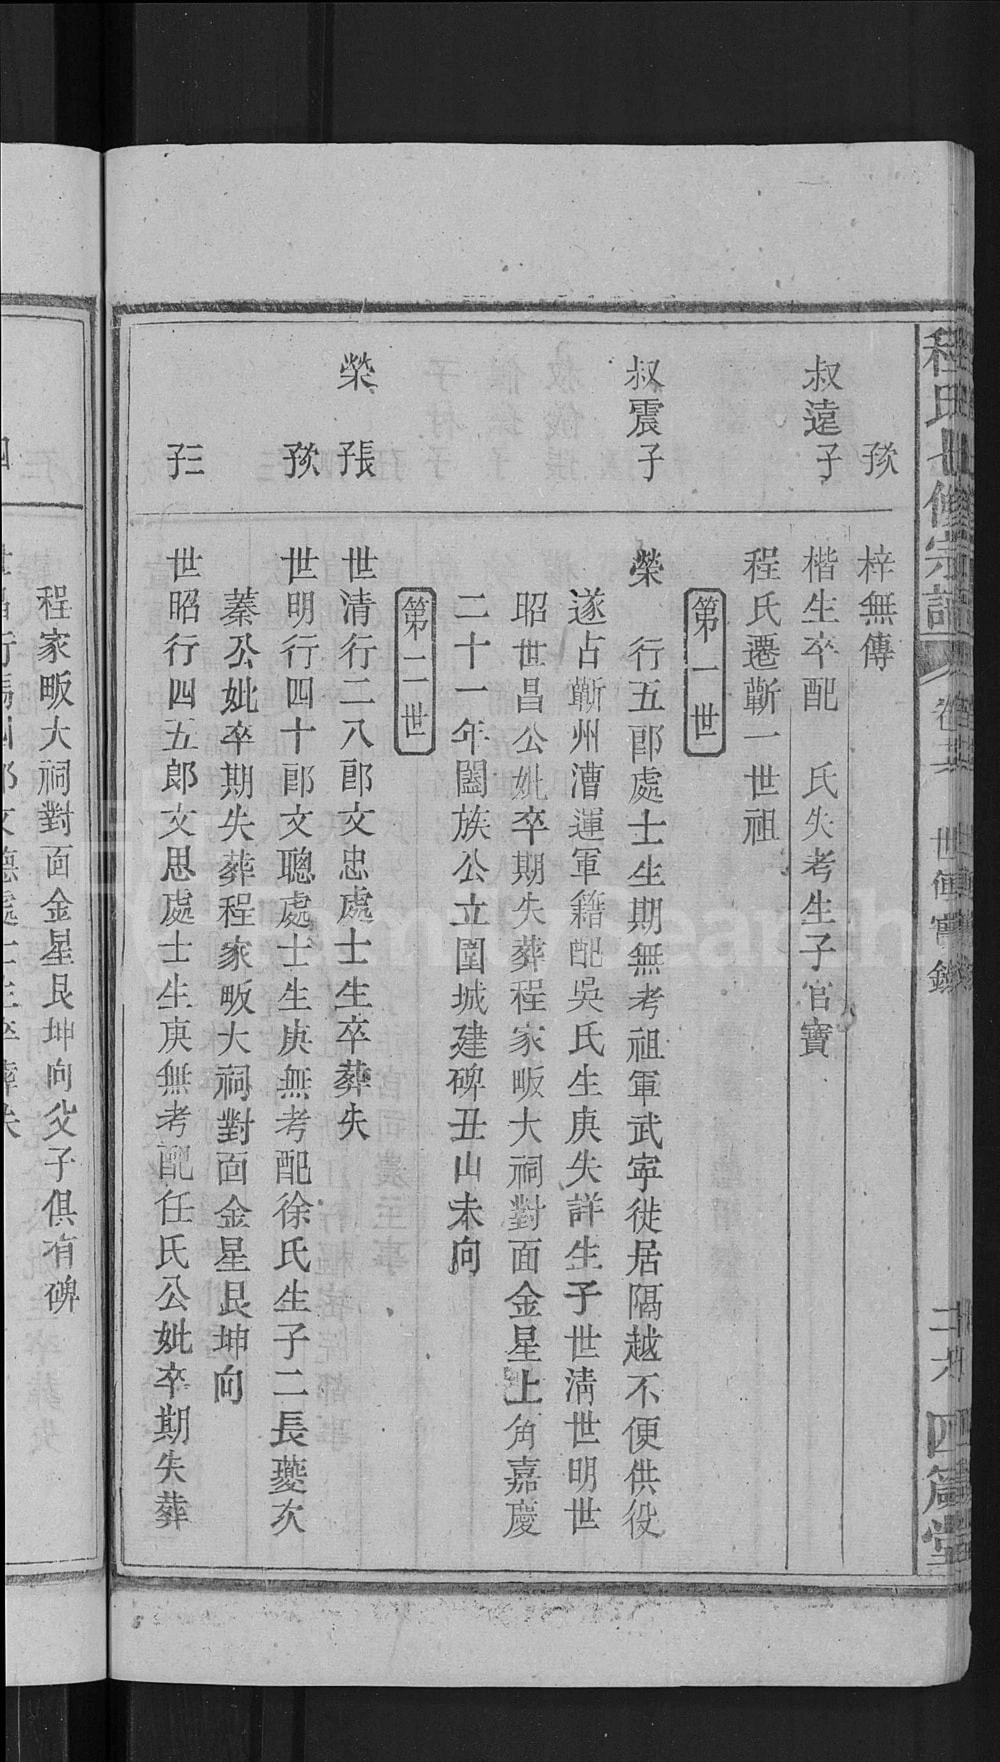 程氏七修宗譜 世傳實錄 二十六 四箴堂
次子 梓無傳
叔遠子 楷生卒配 氏失考生子官寶
程氏遷蘄一世祖
第一世
叔震子 榮 行五郎處士生期無考祖軍武寧徙居隔越不便供役
遂占蘄州漕運軍籍配吳氏生庚失詳生子世清世明世
昭世昌公妣卒期失葬程家畈大祠對面金星上角嘉慶
二十一年闔族公立圍城建碑丑山未向
第二世
榮 長子 世清行二八郎文忠處士生卒葬失
次子 世明行四十郎文聰處士生庚無考配徐氏生子二長夔次
蓁公妣卒期失葬程家畈大祠對面金星艮坤向
三子 世昭行四五郎文思處士生庚無考配任氏公妣卒期失葬
程家畈大祠對面金星艮坤向父子俱有碑
四